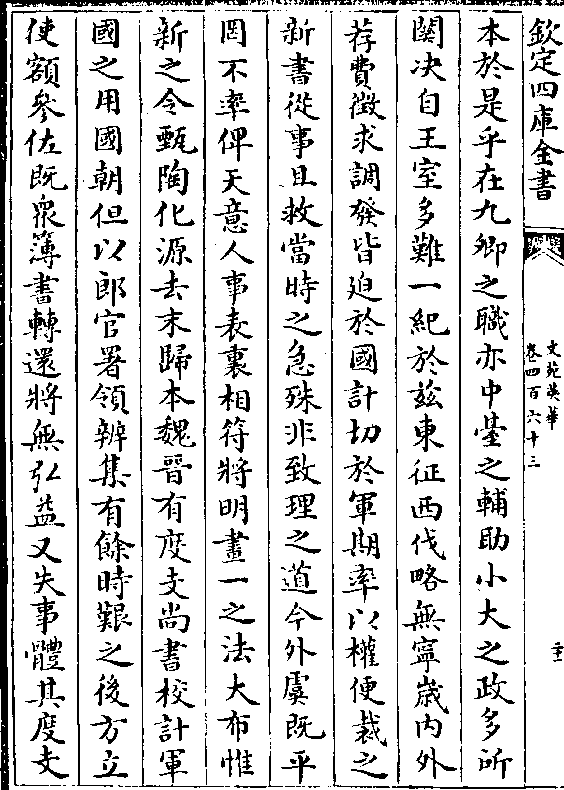 欽定四庫全書
文苑英華
卷四百六十三
二十一
本於是乎在九卿之職亦中臺之輔助小大之政多所
關决自王室多難一紀於兹東征西伐略無寧歳内外
荐費徴求調發皆迫於國計切於軍期率以權便裁之
新書從事且救當時之急殊非致理之道今外虞既平
罔不率俾天意人事表裏相符將明畫一之法大布惟
新之令甄陶化源去末歸本魏晉有度支尚書校計軍
國之用國朝但以郎官署領辨集有餘時艱之後方立
使額參佐既衆簿書轉還將無弘益又失事體其度支